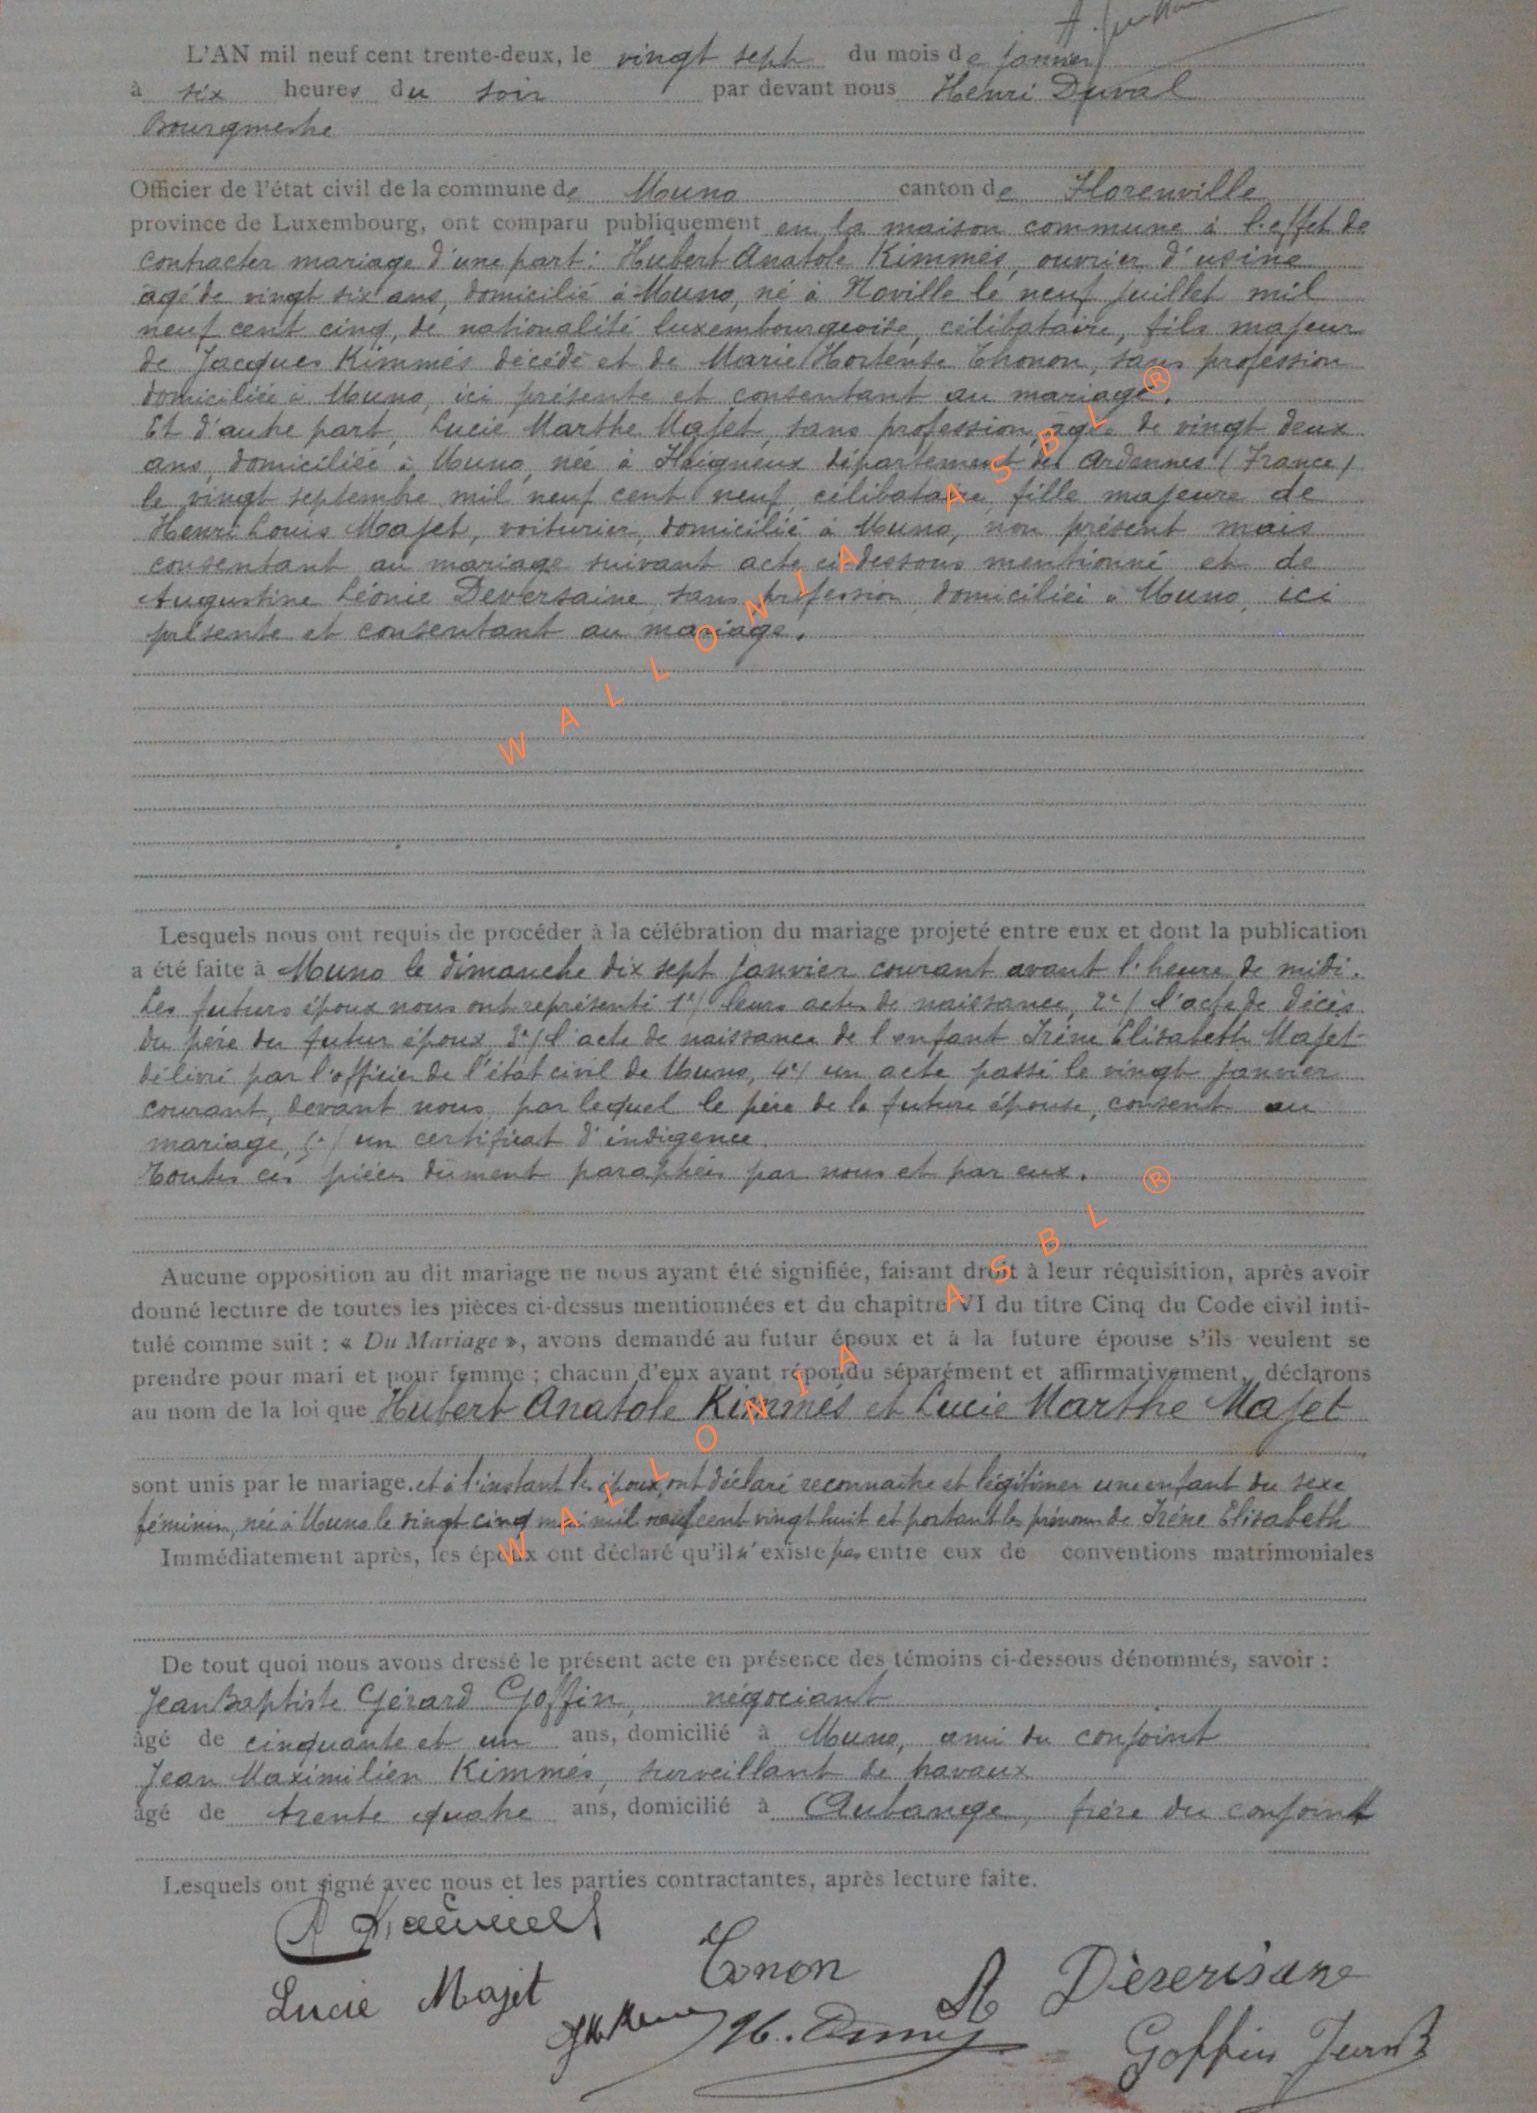 L'AN mil neuf cent trente-deux, le vingt sept du mois de janvier
à six heures du soir par devant nous Henri Duval
Bourgmestre
Officier de l'état civil de la commune de Muno canton de Florenville
province de Luxembourg, ont comparu publiquement en la maison commune à l'effet de
contracter mariage d'une part : Hubert Anatole Kimmés, ouvrier d'usine
âgé de vingt six ans, domicilié à Muno, né à Noville le neuf juillet mil
neuf cent cinq, de nationalité luxembourgeoise, célibataire, fils majeur
de Jacques Kimmés décédé et de Marie Hortense Thonon, sans profession
domiciliée à Muno, ici présente et consentant au mariage.
Et d'autre part, Lucie Marthe Majet, sans profession, âgée de vingt deux
ans, domiciliée à Muno, née à Haigneux département des Ardennes (France)
le vingt septembre mil neuf cent neuf, célibataire, fille majeure de
Henri Louis Majet, voiturier, domicilié à Muno, non présent mais
consentant au mariage suivant acte ci-dessous mentionné et de
Augustine Léonie Deversaine, sans profession, domiciliée à Muno, ici
présente et consentant au mariage.
Lesquels nous ont requis de procéder à la célébration du mariage projeté entre eux et dont la publication
a été faite à Muno le dimanche dix sept janvier courant avant l'heure de midi.
Les futurs époux nous ont représenté 1°/ leurs actes de naissance, 2°/ l'acte de décès
du père du futur époux 3°/ l'acte de naissance de l'enfant Irène Elisabeth Majet
délivré par l'officier de l'état civil de Muno, 4°/ un acte passé le vingt janvier
courant, devant nous, par lequel le père de la future épouse, consent au
mariage, 5°/ un certificat d'indigence.
Toutes ces pièces dûment paraphées par nous et par eux.
Aucune opposition au dit mariage ne nous ayant été signifiée, faisant droit à leur réquisition, après avoir
donné lecture de toutes les pièces ci-dessus mentionnées et du chapitre VI du titre Cinq du Code civil inti-
tulé comme suit : « Du Mariage », avons demandé au futur époux et à la future épouse s'ils veulent se
prendre pour mari et pour femme ; chacun d'eux ayant répondu séparément et affirmativement, déclarons
au nom de la loi que Hubert Anatole Kimmés et Lucie Marthe Majet
sont unis par le mariage. et à l'instant les époux ont déclaré reconnaître et légitimer une enfant du sexe
féminin, née à Muno le vingt cinq mai mil neuf cent vingt huit et portant les prénoms de Irène Elisabeth
Immédiatement après, les époux ont déclaré qu'il n'existe pas entre eux de conventions matrimoniales
De tout quoi nous avons dressé le présent acte en présence des témoins ci-dessous dénommés, savoir :
Jean Baptiste Gérard Goffin, négociant
âgé de cinquante et un ans, domicilié à Muno, ami du conjoint
Jean Maximilien Kimmés, surveillant de travaux
âgé de trente quatre ans, domicilié à Aubange, frère du conjoint
Lesquels ont signé avec nous et les parties contractantes, après lecture faite.
Tonon
Lucie Majet
Goffin Jean B
WALLONIA ASBL ®
WALLONIA ASBL ®